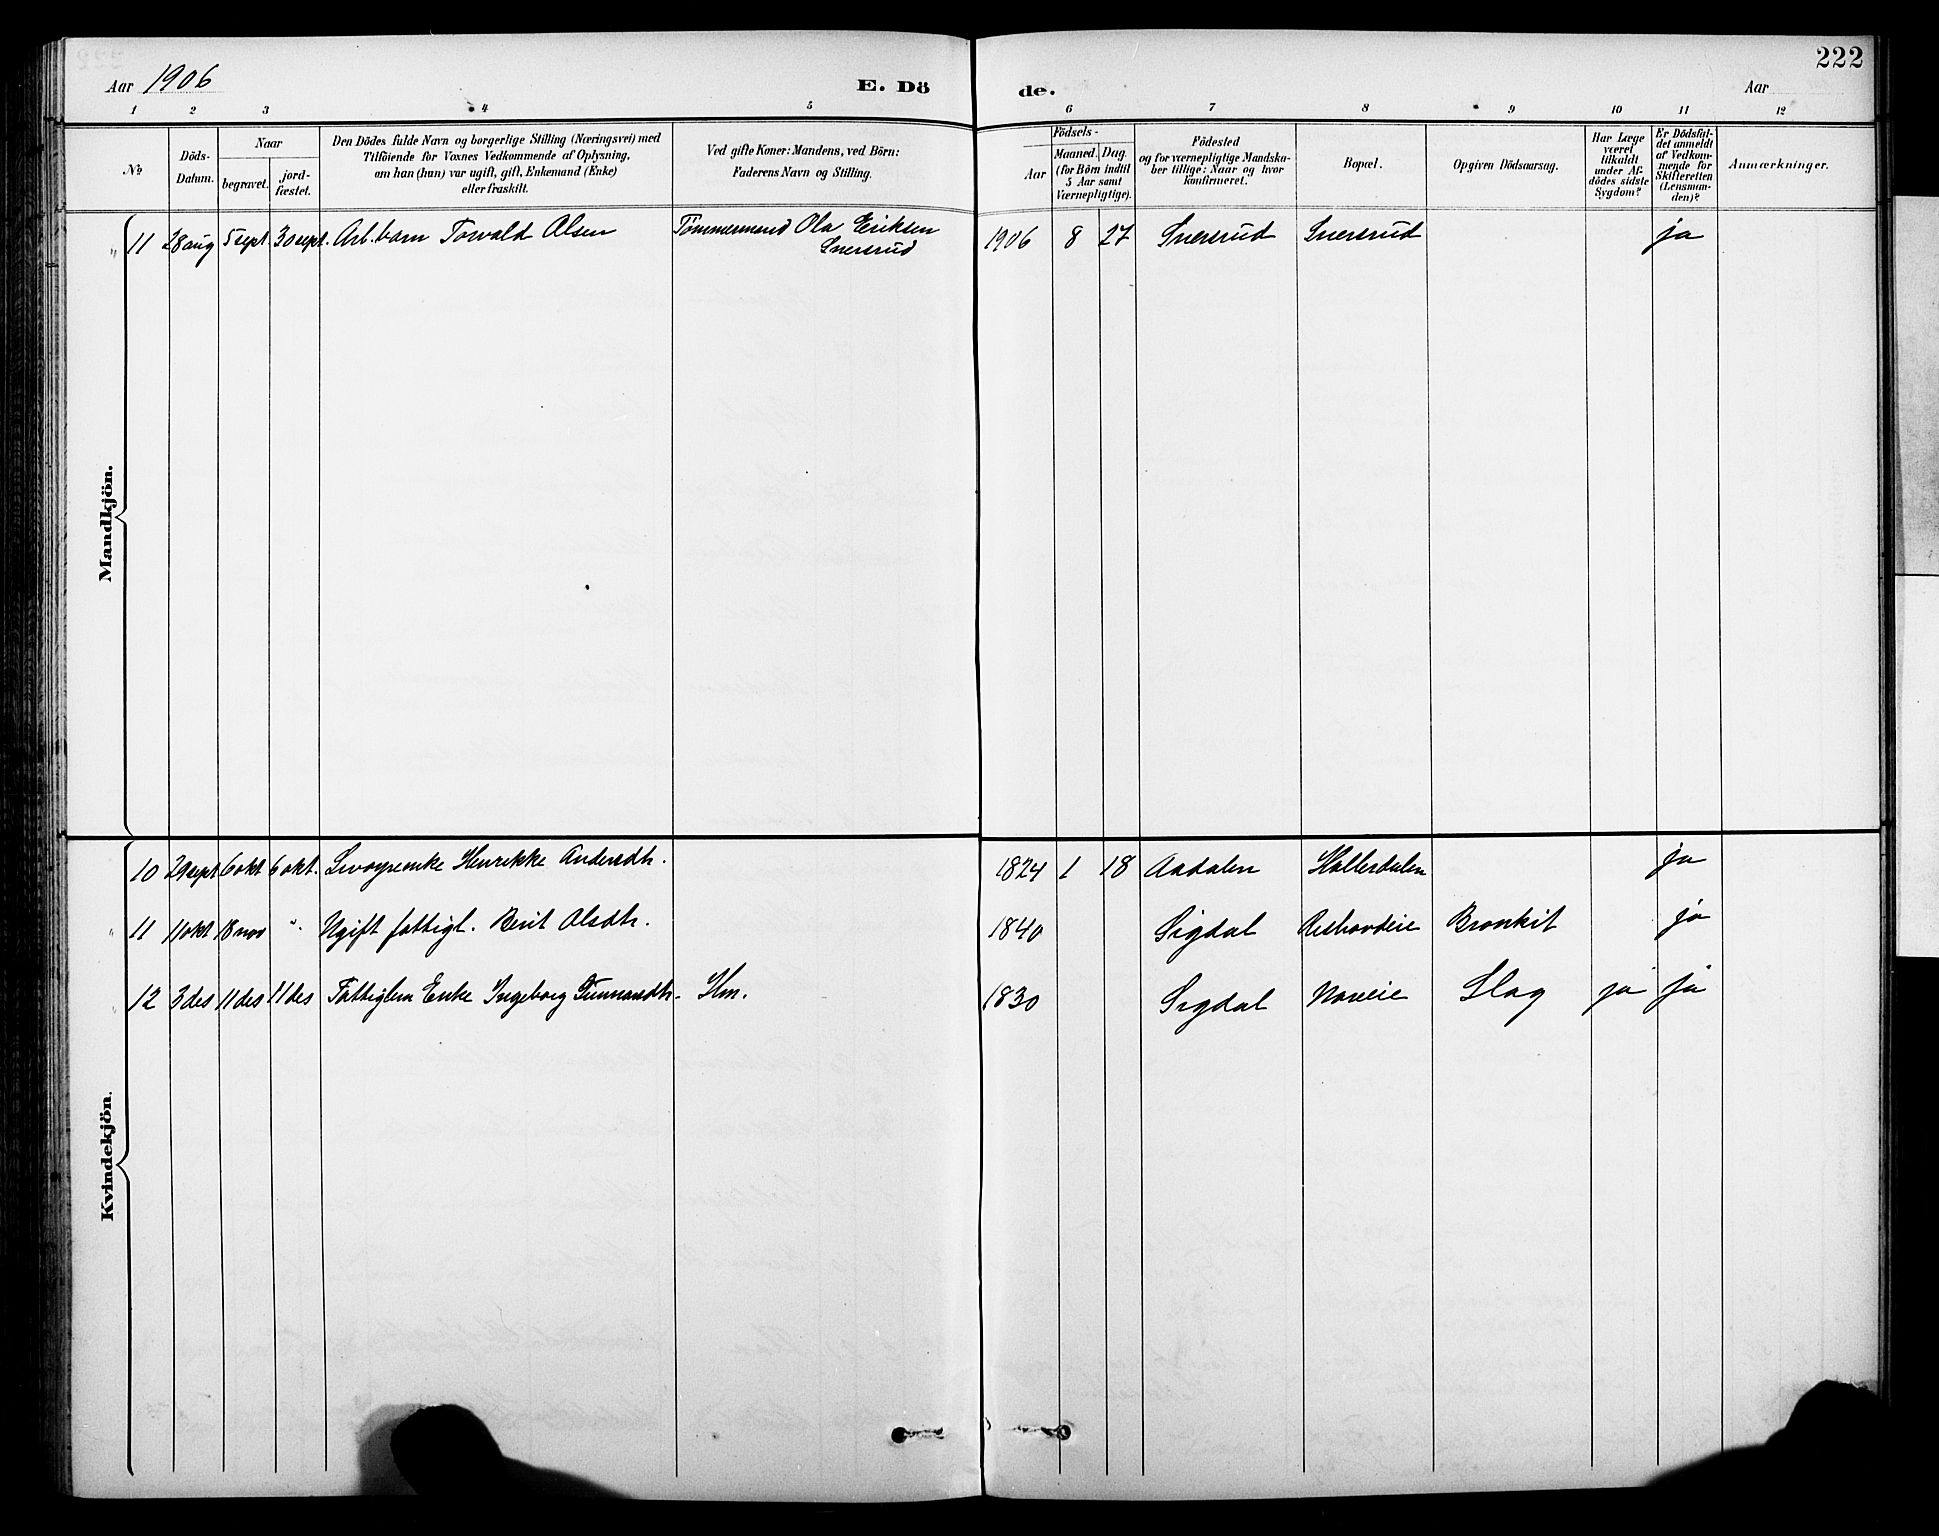 222
Aar 1906 E. Dö de. Aar
1 2 3 4 5 6 7 8 9 10 11 12
№
Döds-Datum.
Naar
begravet.
jord-fæstet.
Den Dödes fulde Navn og borgerlige Stilling (Næringsvei) med
Tilföiende for Voxnes Vedkommende af Oplysning,
om han (hun) var ugift, gift, Enkemand (Enke)
eller fraskilt.
Ved gifte Koner: Mandens, ved Börn:
Faderens Navn og Stilling.
Födsels-
Aar
Maaned. Dag.
(for Börn indtil
5 Aar samt
Værnepligtige).
Födested
og for værnepligtige Mandska-
ber tillige: Naar og hvor
konfirmeret.
Bopæl.
Opgiven Dödsaarsag.
Har Læge
været
tilkaldt
under Af-
dödes sidste
Sygdom?
Er Dödsfal-
det anmeldt
af Vedkom-
mende for
Skifteretten
(Lensman-
den)?
Anmærkninger.
Mandkjön.
" 11 28 aug 5 sept 30 sept. Arb. barn Torvald Olsen Tömmermand Ola Eriksen 1906 8 27 Snersrud Snersrud ja
Snersrud
Kvindekjön.
10 29 sept 6 okt 6 okt. Henrikke Andersdtr. 1824 1 18 Aadalen Hallerdalen ja
" 11 11 okt 18 nov " Ugift fattigl. Berit Olsdtr. 1840 Sigdal Bronkit ja
" 12 3 des 11 des 11 des Fattiglem Enke Ingeborg Gunnarsdtr. Hm. 1830 Sigdal Moreie Slag ja ja